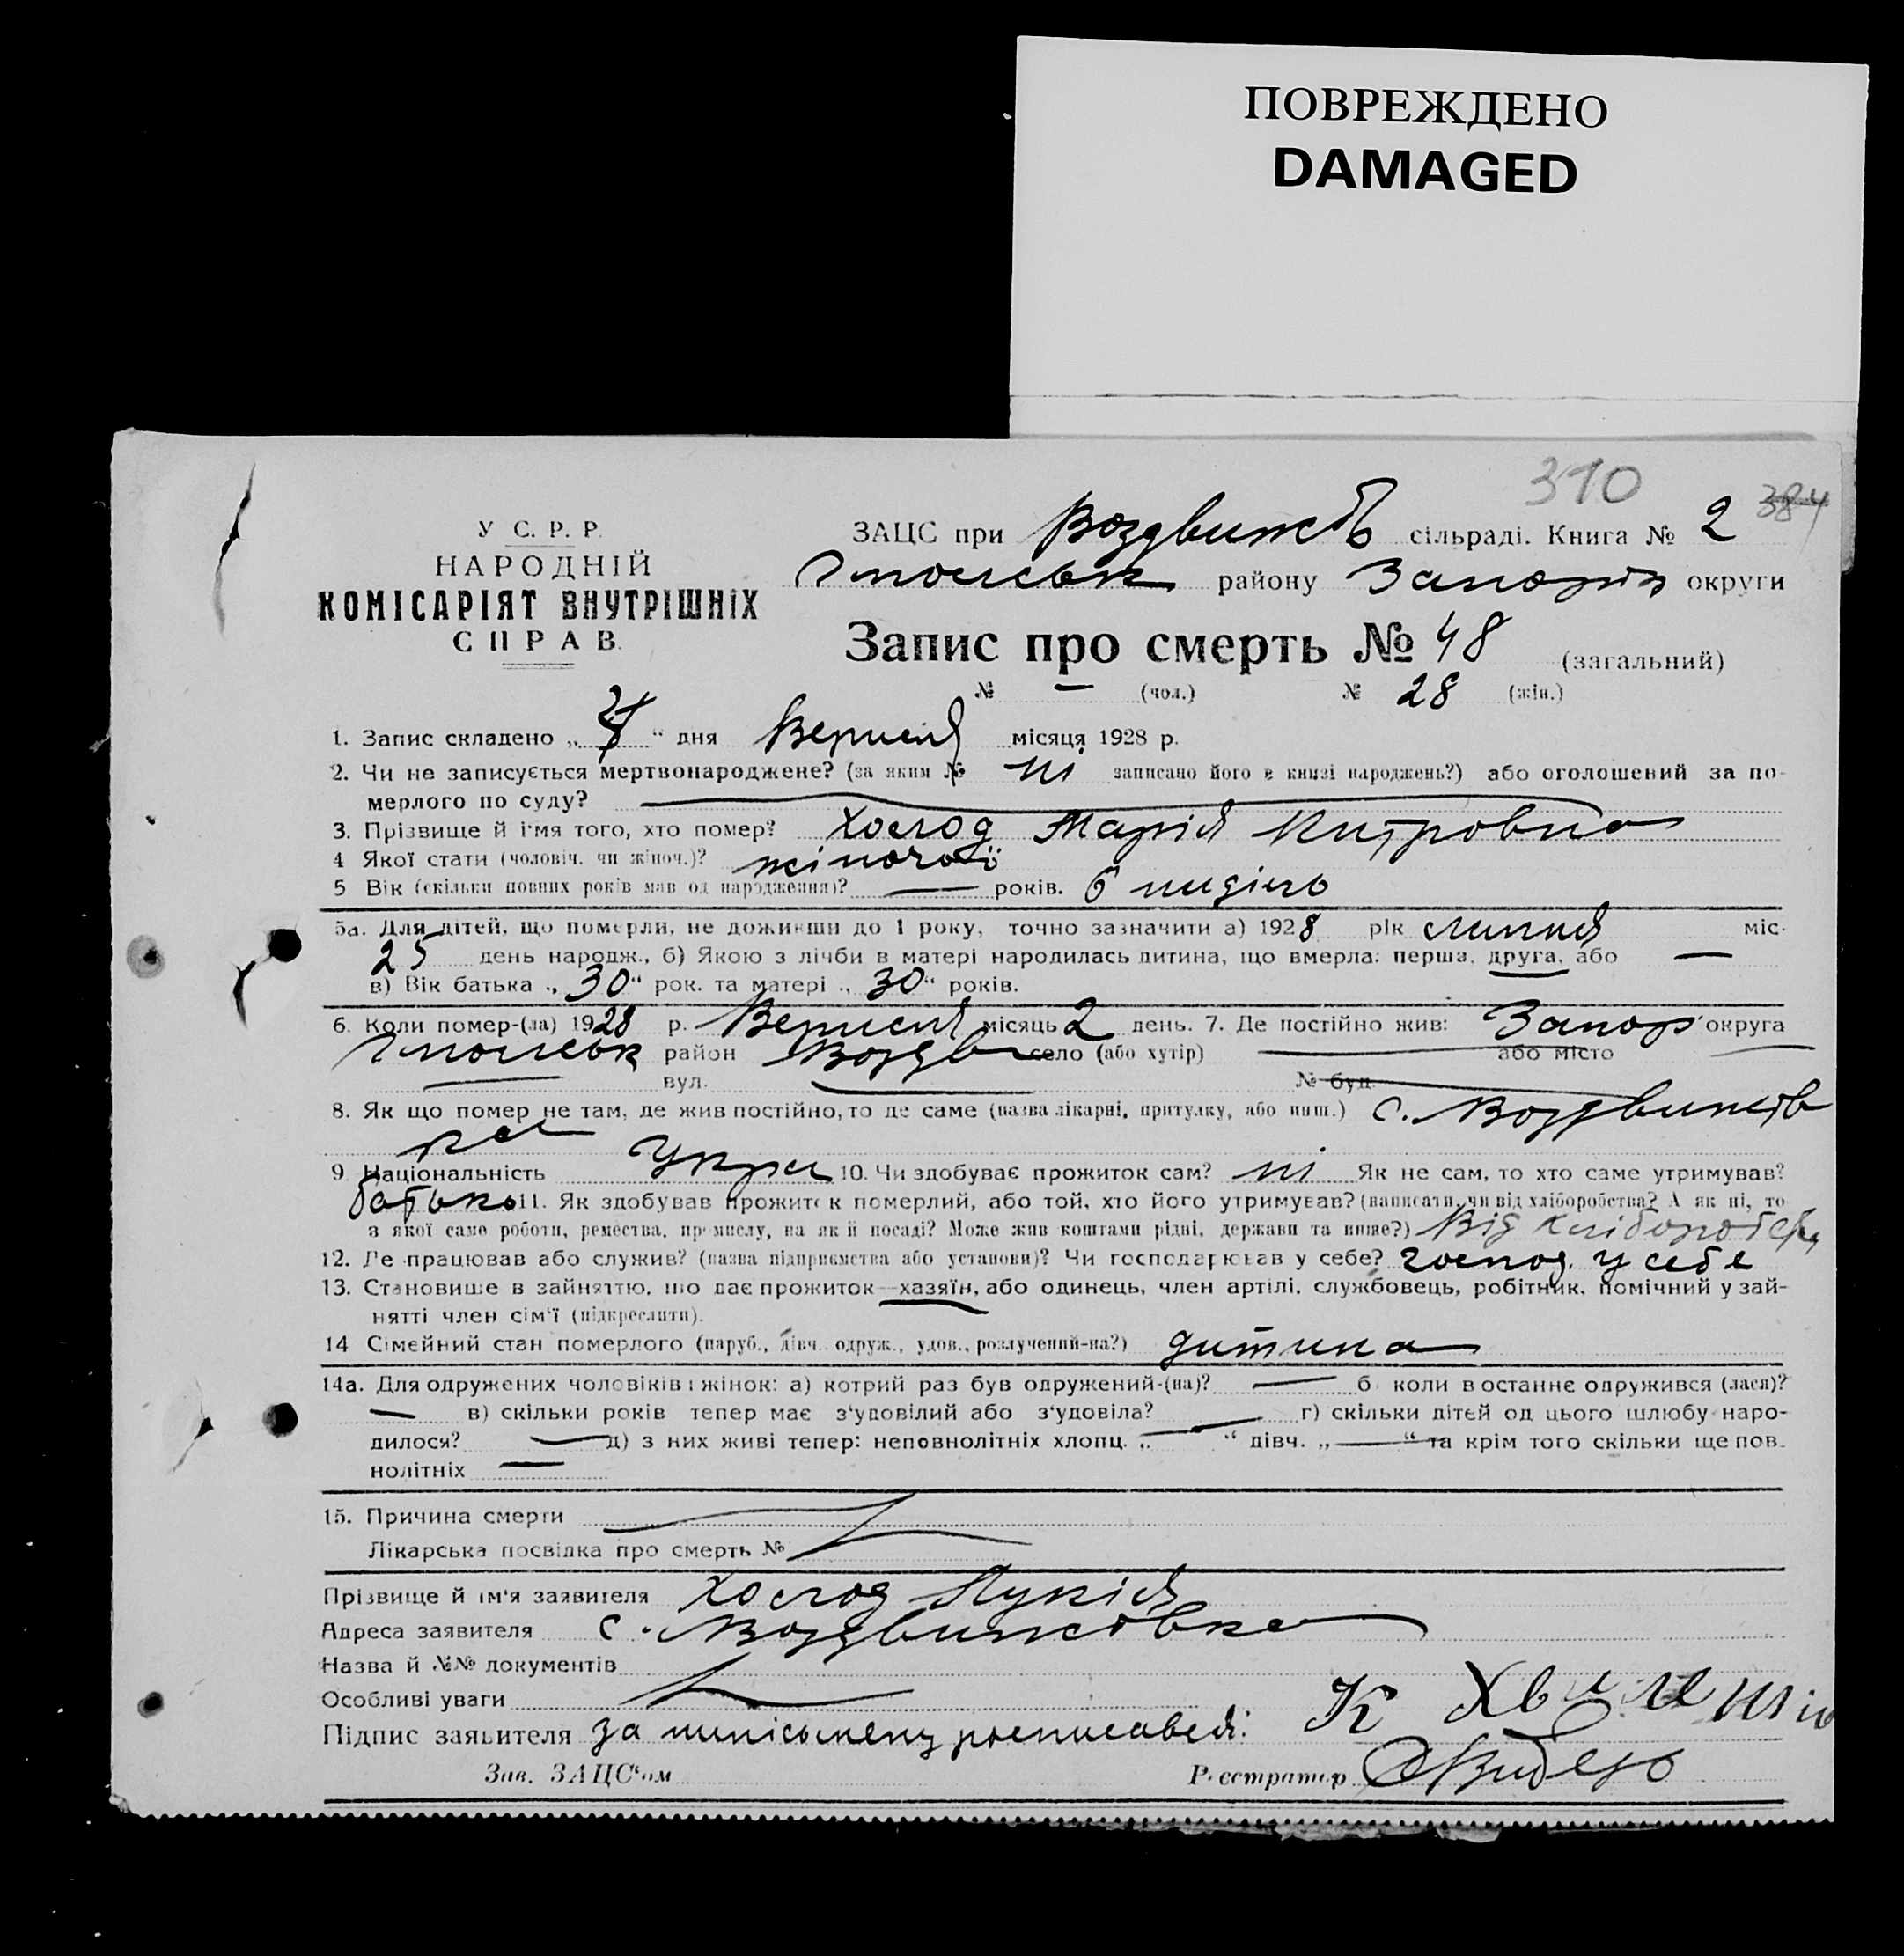 ПОВРЕЖДЕНО
DAMAGED
310
384
У С. Р. Р.
НАРОДНІЙ
КОМІСАРІЯТ ВНУТРІШНІХ
СПРАВ.
ЗАЦС при Воздвижів сільраді. Книга № 2
району Запоріз округи
Запис про смерть № 48 (загальний)
№ — (чол.) № 28 (жін.)
1. Запис складено „ “ дня Вересня місяця 1928 р.
2. Чи не записується мертвонароджене? (за яким № ні записано його в книзі народжень?) або оголошений за по-
мерлого по суду? —
3. Прізвище й ім'я того, хто помер? Холод Марія Митровна
4 Якої стати (чоловіч. чи жіноч.)? жіночої
5 Вік (скільки повних років мав од народження)? — років. 6 ниділь
5а. Для дітей, що померли, не доживши до 1 року, точно зазначити а) 1928 рік липня міс.
25 день народж., б) Якою з лічби в матері народилась дитина, що вмерла: перша, друга, або —
в) Вік батька „ 30 “ рок. та матері „ 30 “ років.
6. Коли помер-(ла) 1928 р. Вересня місяць 2 день. 7. Де постійно жив: Запор округа
район Воздв село (або хутір) — або місто
— вул. — № буд.
8. Як що помер не там, де жив постійно, то де саме (назва лікарні, притулку, або инш.) с. Воздвижів
ка
9 Національність Укра 10. Чи здобуває прожиток сам? ні Як не сам, то хто саме утримував?
батько 11. Як здобував прожиток померлий, або той, хто його утримував? (написати, чи від хліборобства? А як ні, то
з якої само роботи, ремества, промислу, на якій посаді? Може жив коштами рідні, держави та инше?) Від хліборобства
12. Де працював або служив? (назва підприємства або установи)? Чи господарював у себе? господ. у себе
13. Становище в зайняттю, що дає прожиток—хазяїн, або одинець, член артілі, службовець, робітник, помічний у зай-
нятті член сім'ї (підкреслити).
14 Сімейний стан померлого (паруб., дівч. одруж., удов., розлучений-на?) дитина
14а. Для одружених чоловіків і жінок: а) котрий раз був одружений-(на)? — б) коли востаннє одружився (лася)?
— в) скільки років тепер має з'удовілий або з'удовіла? — г) скільки дітей од цього шлюбу наро-
дилося? — д) з них живі тепер: неповнолітніх хлопц. „ — “ дівч. „ — “ та крім того скільки ще пов-
нолітніх —
15. Причина смерти —
Лікарська посвідка про смерть № —
Прізвище й ім'я заявителя Холод Лукія
Адреса заявителя с. Воздвижівка
Назва й №№ документів
Особливі уваги
Підпис заявителя за
К
Зав. ЗАЦС'ом
Реєстратор